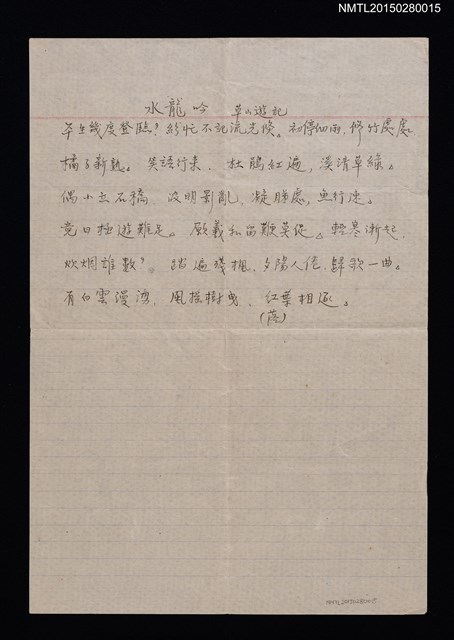 NMTL20150280015
水龍吟 草山遊記
平生幾度登臨？紛忙不記流光換。初停細雨、修竹處處、
橘子新熟。笑語行來、杜鵑紅遍、溪清草綠。
偶小立石橋、波明影亂、凝睇處、魚行速。
竟日極遊難足。願羲和留難莫促。輕寒漸起、
炊烟誰數？踏遍殘楓、夕陽人倦、歸歌一曲。
有白雲漫灣、風搖樹曳、紅葉相逐。
NMTL20150280015